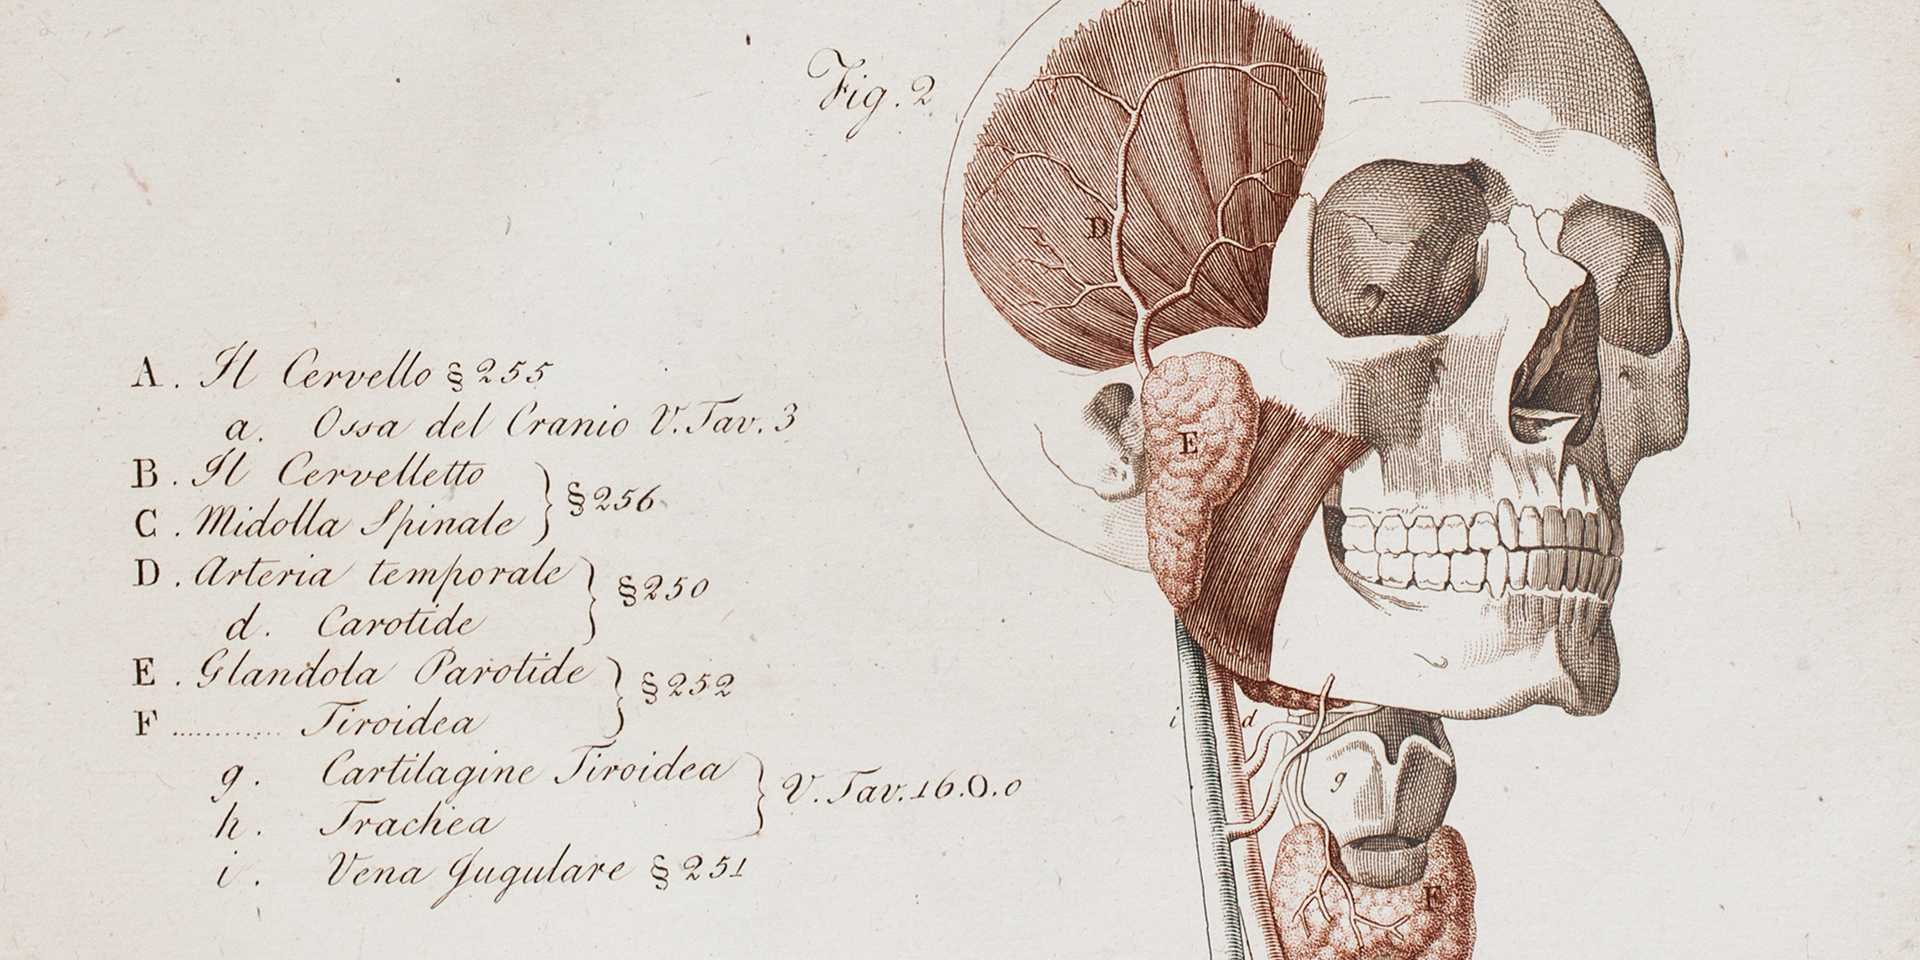 Fig. 2
A. Il Cervello § 255
a. Ossa del Cranio V. Tav. 3
B. Il Cervelletto
C. Midolla Spinale } § 256
D. Arteria temporale
d. Carotide } § 250
E. Glandola Parotide
F ............ Tiroidea } § 252
g. Cartilagine Tiroidea
h. Trachea } V. Tav. 16.O.o
i. Vena Jugulare § 251
D
E
i
d
g
F